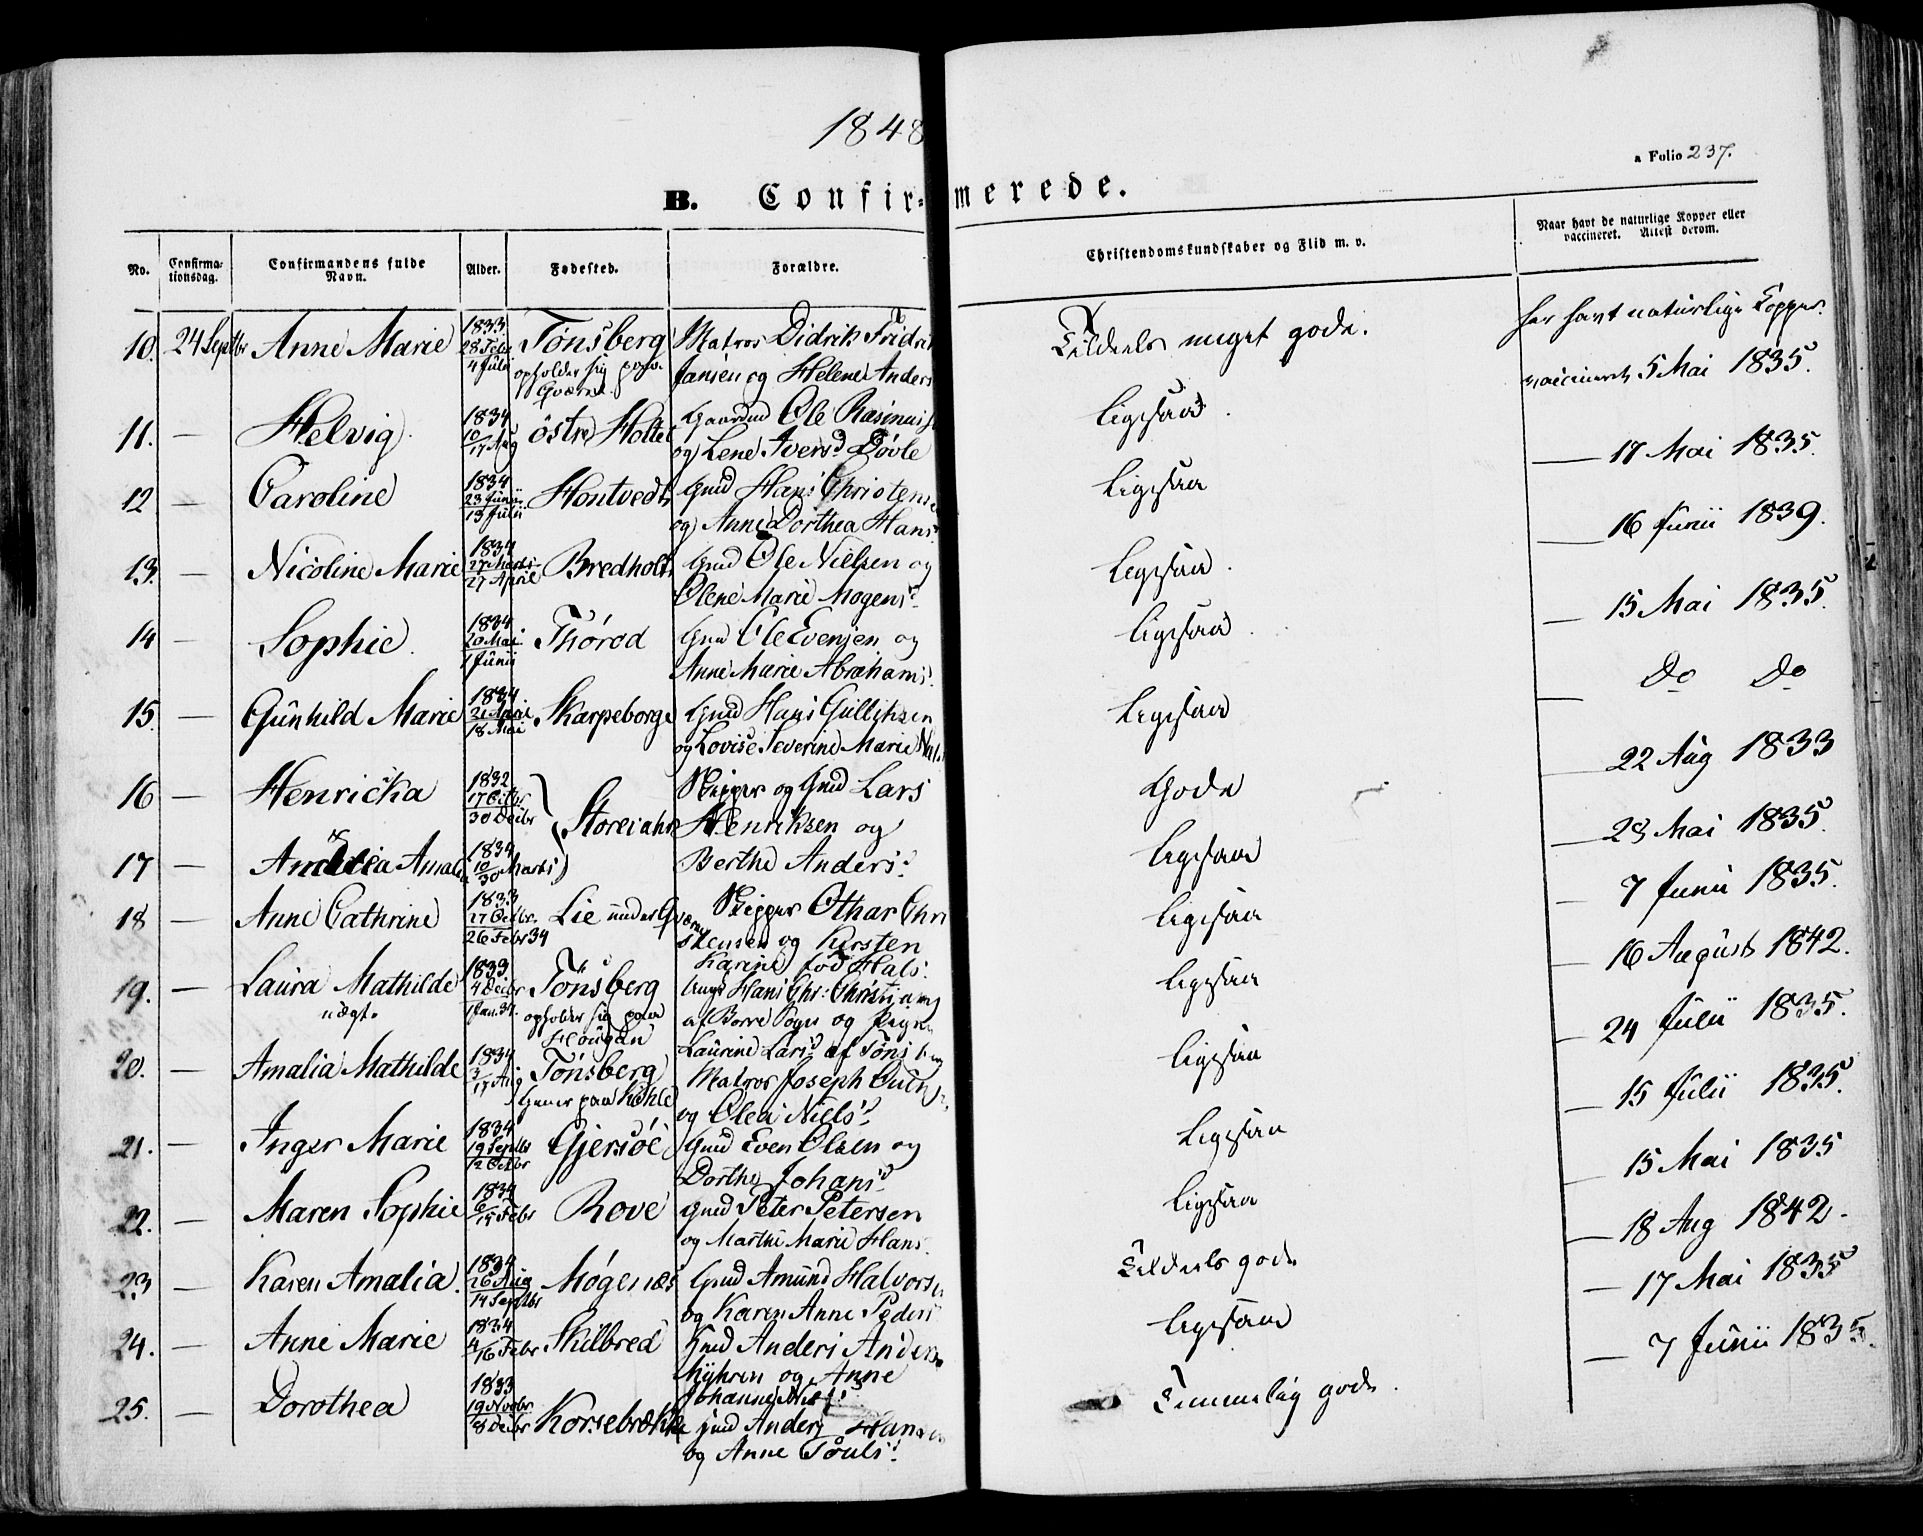 1848
a Folio 237.
B. Confir- merede.
No. Confirma- tionsdag. Confirmandens fulde Navn. Alder. Fødested. Forældre. Christendomskundskaber og Flid m. v. Naar havt de naturlige Kopper eller vaccineret. Attest derom.
10. 24 Septbr Anne Marie 1833 28 Febr 4 Juli Tønsberg Matros Didrik Fridri Tildeels meget gode. har havt naturlige Kopper.
opholder sig paa Gværne. Jansen og Helene Anders vaccineret 5 Mai 1835.
11. — Helvig. 1834 10 17 Aug östre Holtet Gaardmd Ole Rasmus ligesaa. — 17 Mai 1835.
og Lene Ivers d Døvle
12 — Caroline 1834 23 Junii 13 Julii Hontvedt Gmd Hans Christens Ligesaa — 16 Junii 1839.
og Anne Dorthea Hans
13. — Nicoline Marie 1834 27 Marts 27 April Bredholt Gmd Ole Nielsen og Ligesaa. — 15 Mai 1835.
Olene Marie Mogens d
14 — Sophie. 1834 20 Mai 1 Junii Thórod Gmd Ole Evensen og ligesaa. — Do Do
Anne Marie Abrahams
15. — Gunhild Marie 1834 21 April 18 Mai Skarpeborge Gmd Hans Gullichsen Ligesaa — 22 Aug 1833
og Lovise Severine Marie
16 — Henricka 1832 17 Octbr 30 Decbr Storeiahr Skipper og Gmd Lars Gode — 28 Mai 1835.
Henriksen og
17 — Amalia 1834 10 30 Marts Berthe Anders d Ligesaa — 7 Junii 1835.
18 — Anne Cathrine 1833 27 Octbr. 26 Febr 34 Lie under Gværne Skipper Othar Chri Ligesaa — 16 August 1842.
stensen og Kirsten
Karine fød Hals.
19. — Laura Mathilde uægt. 1833 4 Decbr 1 Jan. 34. Tönsberg opholder sig paa Hougan Ungk Hans Chr: Christians ligesaa — 24 Julii 1835.
af Borre Sogn og Pige
Laurine Lars d af Tønsberg
20. — Amalia Mathilde 1834 3 17 Aug Tönsberg tjener paa Kohle Matros Joseph ligesaa — 15 Julii 1835.
og Olea Niels d
21. — Inger Marie 1834 19 Septbr 12 Octbr Gjersöe Gmd Even Olsen og Ligesaa — 15 Mai 1835
Dorthe Johans d
22. — Maren Sophie 1834 6 15 Febr Rove Gmd Peter Petersen Ligesaa — 18 Aug 1842.
og Marthe Marie Hans.
23 — Karen Amalia. 1834 26 Aug 14 Septbr Møgenæs Gmd Amund Halvors Tildeels gode — 17 Mai 1835
og Karen Anne Peders
24. — Anne Marie 1834 4 16 Febr Skilbred Gmd Anders Anders ligesaa — 7 Junii 1835.
Myhren og Anne
Johanne
25. — Dorothea 1833 19 Novbr 8 Decbr Korsebrække Gmd Anders Hans Temmelig gode.
og Anne Pouls d